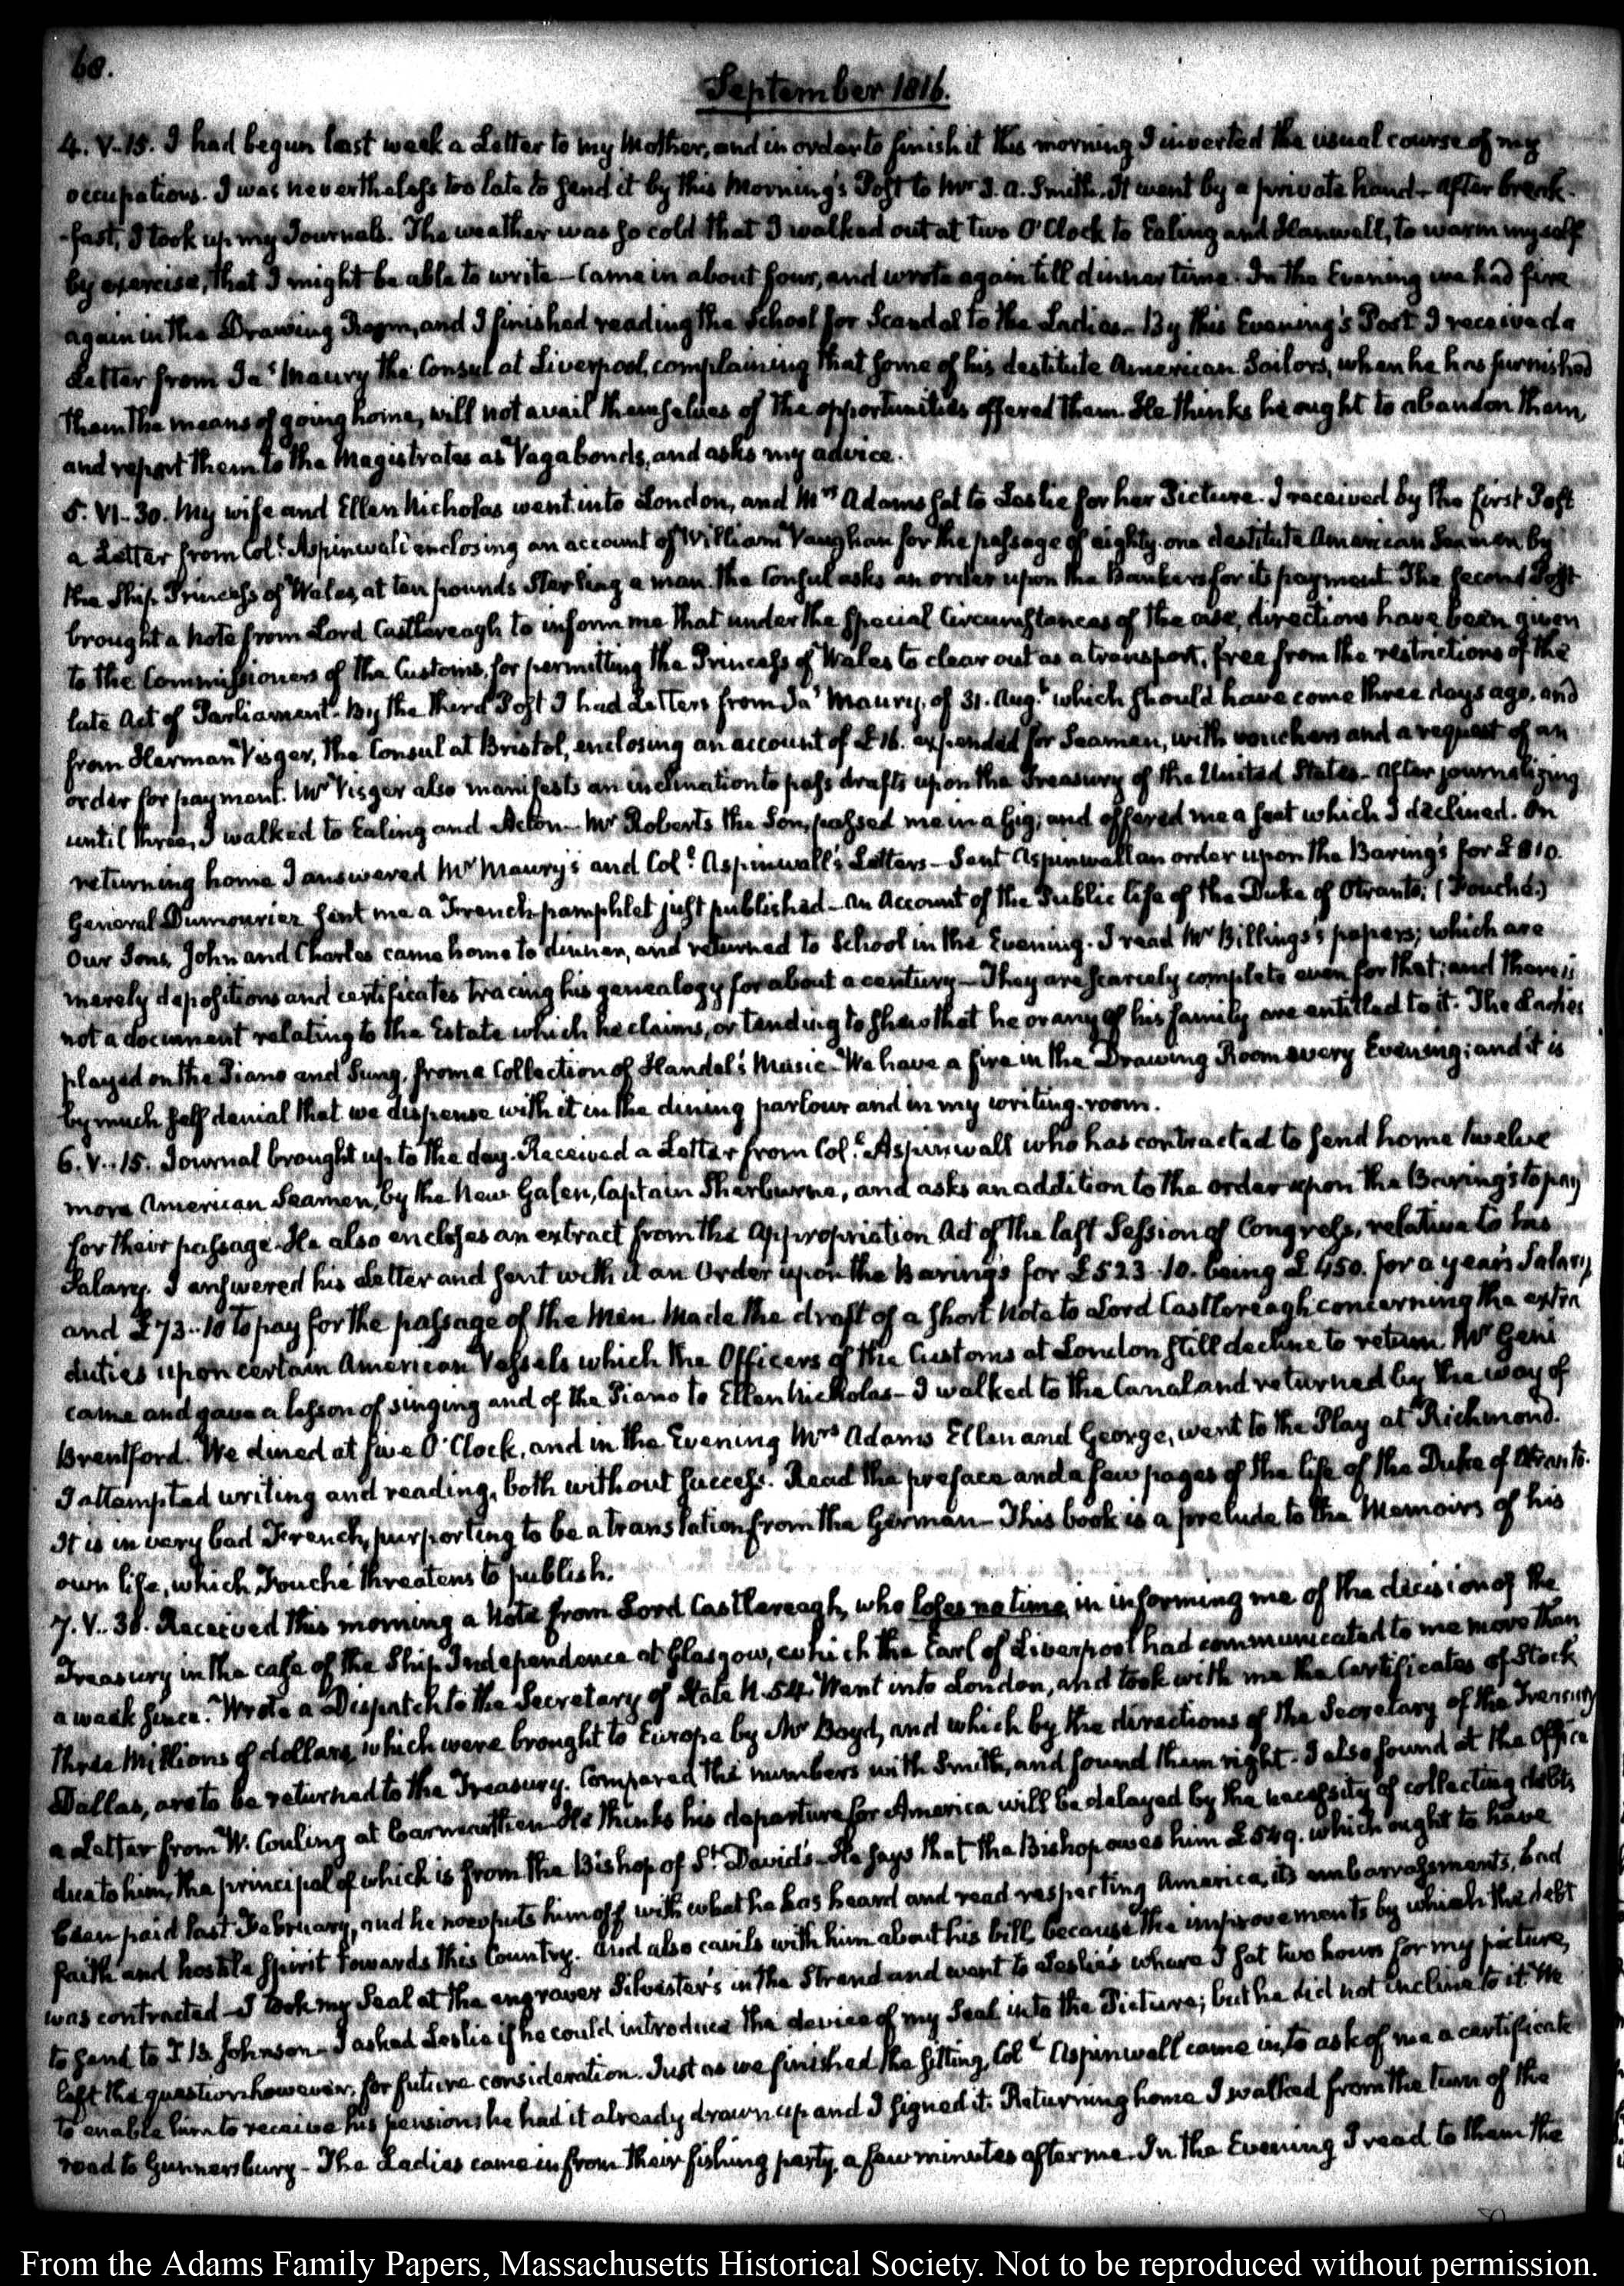 60.
September 1816.
4. V..15. I had begun last week a Letter to my Mother, and in order to finish it this morning I inverted the usual course of my
occupations. I was nevertheless too late to send it by this Morning's Post to Mr J. A. Smith. It went by a private hand. After break-
-fast, I took up my Journals. The weather was so cold that I walked out at two O'Clock to Ealing and Hanwell, to warm myself
by exercise, that I might be able to write — Came in about four, and wrote again till dinner time. In the Evening we had fire
again in the Drawing Room, and I finished reading the School for Scandal to the Ladies. By this Evening's Post I received a
Letter from Jas Maury the Consul at Liverpool, complaining that some of his destitute American Sailors, when he has furnished
them the means of going home, will not avail themselves of the opportunities offered them. He thinks he ought to abandon them,
and report them to the Magistrates as Vagabonds, and asks my advice.
5. VI..30. My wife and Ellen Nicholas went into London, and Mrs Adams sat to Leslie for her Picture. I received by the first Post
a Letter from Coll Aspinwall enclosing an account of William Vaughan for the passage of eighty-one destitute American Seamen by
the Ship Princess of Wales, at ten pounds Sterling a man. The Consul asks an order upon the Bankers for its payment. The second Post
brought a Note from Lord Castlereagh to inform me that under the special Circumstances of the case, directions have been given
to the Commissioners of the Customs, for permitting the Princess of Wales to clear out as a transport, free from the restrictions of the
late Act of Parliament. By the third Post I had Letters from Jas Maury, of 31. Augt which should have come three days ago, and
from Harman Visger, the Consul at Bristol, enclosing an account of £16. expended for Seamen, with vouchers and a request of an
order for payment. Mr Visger also manifests an inclination to pass drafts upon the Treasury of the United States. After journalizing
until three, I walked to Ealing and Acton — Mr Roberts the Son, passed me in a Gig; and offered me a seat which I declined. On
returning home I answered Mr Maury's and Coll Aspinwall's Letters — Sent Aspinwall an order upon the Barings for £810.
General Dumouriez sent me a French pamphlet just published — An Account of the Public life of the Duke of Otranto; (Fouché.)
Our Sons, John and Charles came home to dinner, and returned to School in the Evening. I read Mr Billings's papers; which are
merely depositions and certificates tracing his genealogy for about a century — They are scarcely complete even for that; and there is
not a document relating to the Estate which he claims, or tending to show that he or any of his family are entitled to it. The Ladies
played on the Piano and Sung, from a Collection of Handel's Music — We have a fire in the Drawing Room every Evening; and it is
by much self denial that we dispense with it in the dining parlour and in my writing-room.
6. V..15. Journal brought up to the day. Received a Letter from Coll Aspinwall who has contracted to send home twelve
more American Seamen, by the New Galen, Captain Sherburne, and asks an addition to the order upon the Barings to pay
for their passage. He also encloses an extract from the Appropriation Act of the last Session of Congress, relative to his
Salary. I answered his Letter and sent with it an Order upon the Barings for £523..10. being £450. for a year's Salary
and £73..10 to pay for the passage of the Men. Made the draft of a short Note to Lord Castlereagh concerning the extra
duties upon certain American Vessels which the Officers of the Customs at London still decline to return. Mr Geni
came and gave a lesson of singing and of the Piano to Ellen Nicholas — I walked to the Canal and returned by the way of
Brentford. We dined at five O'Clock, and in the Evening Mrs Adams Ellen and George, went to the Play at Richmond.
I attempted writing and reading, both without success. Read the preface and a few pages of the life of the Duke of Otranto.
It is in very bad French, purporting to be a translation from the German — This book is a prelude to the Memoirs of his
own life, which Fouché threatens to publish.
7. V..30. Received this morning a Note from Lord Castlereagh, who loses no time in informing me of the decision of the
Treasury in the case of the Ship Independence at Glasgow, which the Earl of Liverpool had communicated to me more than
a week since. Wrote a Dispatch to the Secretary of State N. 54. Went into London, and took with me the Certificates of Stock
three Millions of dollars, which were brought to Europe by Mr Boyd, and which by the directions of the Secretary of the Treasury
Dallas, are to be returned to the Treasury. Compared the numbers with Smith, and found them right. I also found at the Office
a Letter from W. Couling at Carmarthen — He thinks his departure for America will be delayed by the necessity of collecting debts
due to him, the principal of which is from the Bishop of St David's — He says that the Bishop owes him £549. which ought to have
been paid last February, and he now puts him off with what he has heard and read respecting America, its embarrassments, bad
faith and hostile spirit towards this Country. And also cavils with him about his bill, because the improvements by which the debt
was contracted — I took my Seal at the engraver Silvester's in the Strand and went to Leslie's where I sat two hours for my picture,
to send to J. B. Johnson — I asked Leslie if he could introduce the device of my Seal into the Picture; but he did not incline to it. We
left the question however, for future consideration. Just as we finished the sitting, Coll Aspinwall came in, to ask of me a certificate
to enable him to receive his pension; he had it already drawn up and I signed it. Returning home I walked from the turn of the
road to Gunnersbury — The Ladies came in from their fishing party, a few minutes after me. In the Evening I read to them the
From the Adams Family Papers, Massachusetts Historical Society. Not to be reproduced without permission.